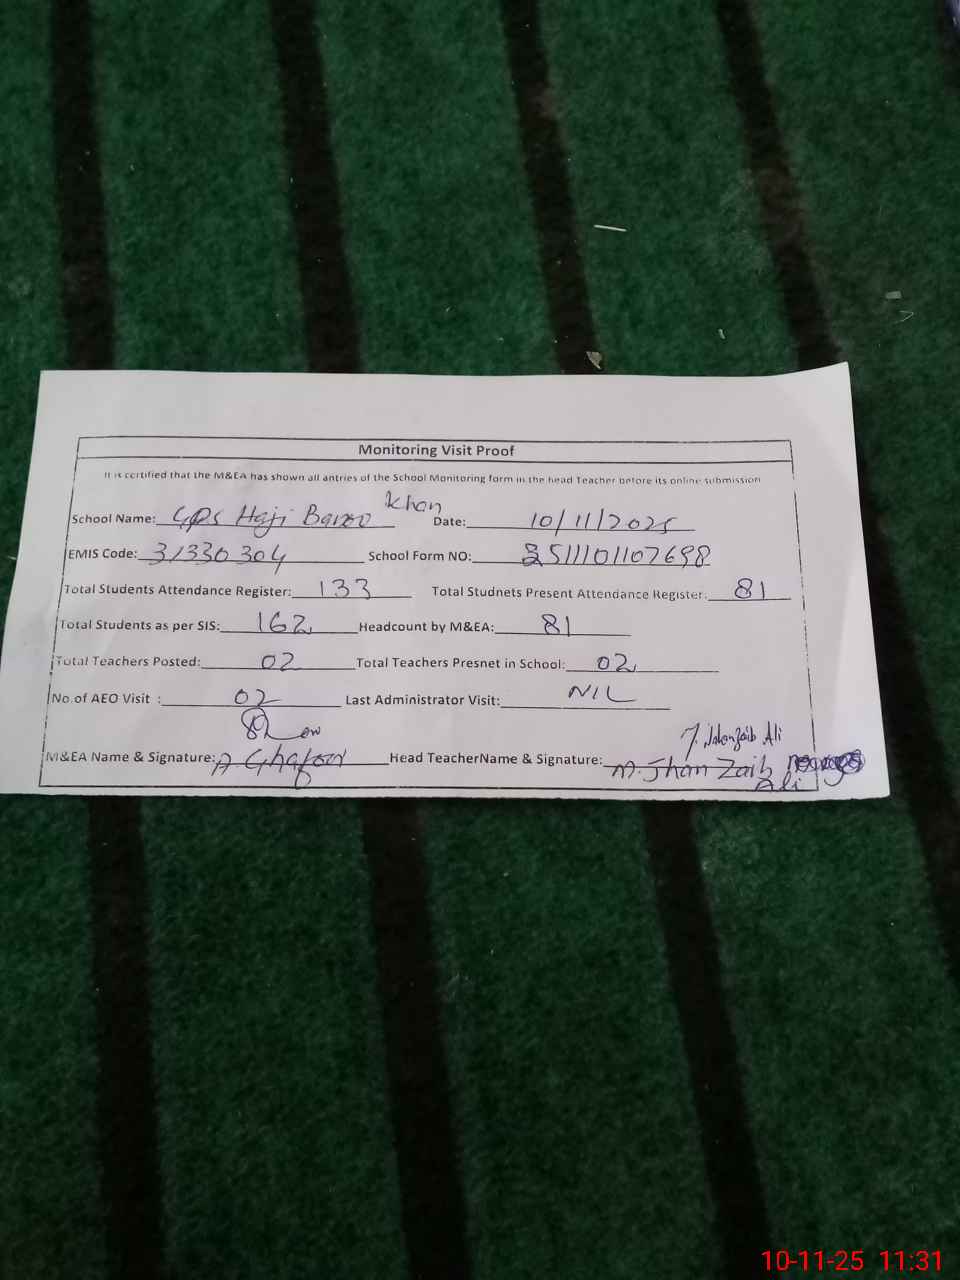 Monitoring Visit Proof
It is certified that the M&EA has shown all antries of the School Monitoring form in the head Teacher before its online submission
School Name: GPS Haji Banoo Khan Date: 10/11/2025
EMIS Code: 31330304 School Form NO: 2511101107698
Total Students Attendance Register: 133 Total Studnets Present Attendance Register: 81
Total Students as per SIS: 162 Headcount by M&EA: 81
Total Teachers Posted: 02 Total Teachers Presnet in School: 02
No of AEO Visit : 02 Last Administrator Visit: NIL
M&EA Name & Signature: A Ghafoor Head TeacherName & Signature: M. Jhan Zaib Ali
10-11-25 11:31